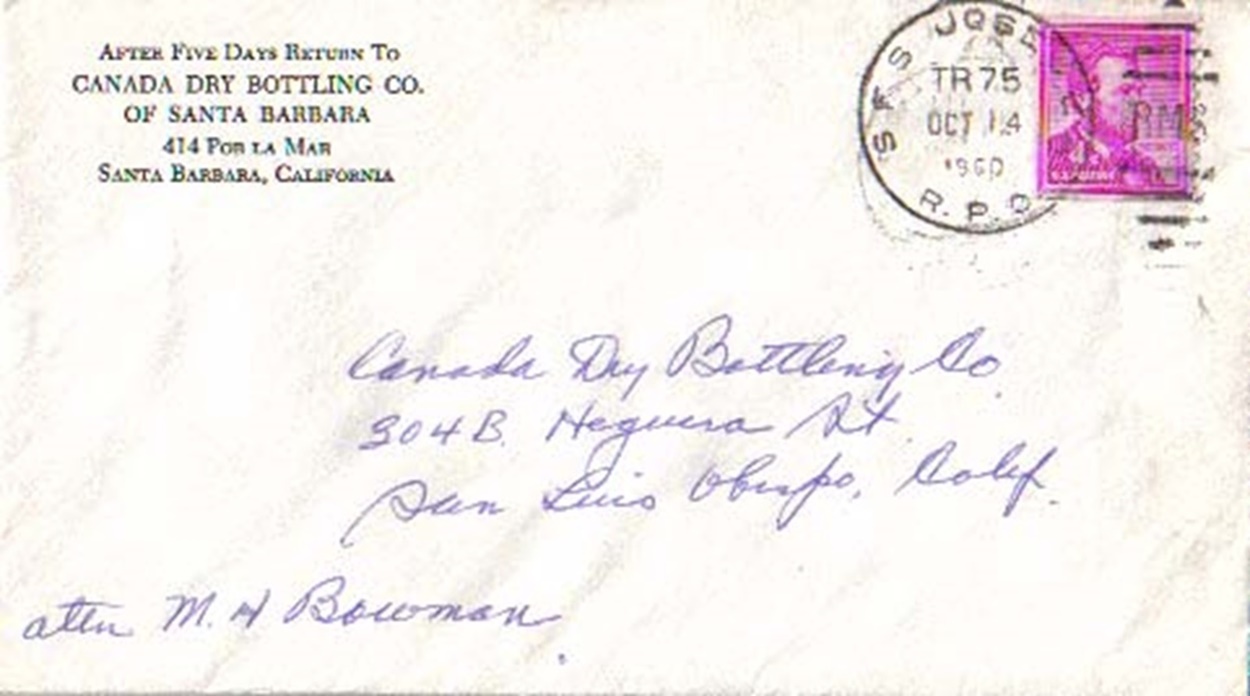 AFTER FIVE DAYS RETURN TO
CANADA DRY BOTTLING CO.
OF SANTA BARBARA
414 POR LA MAR
SANTA BARBARA, CALIFORNIA
S F S JOSE
TR 75
OCT 14
1960
R.P.O.
RMS
Canada Dry Bottling Co.
304 B. Heguera St.
San Luis Obispo, Calif.
attn M. H Bowman